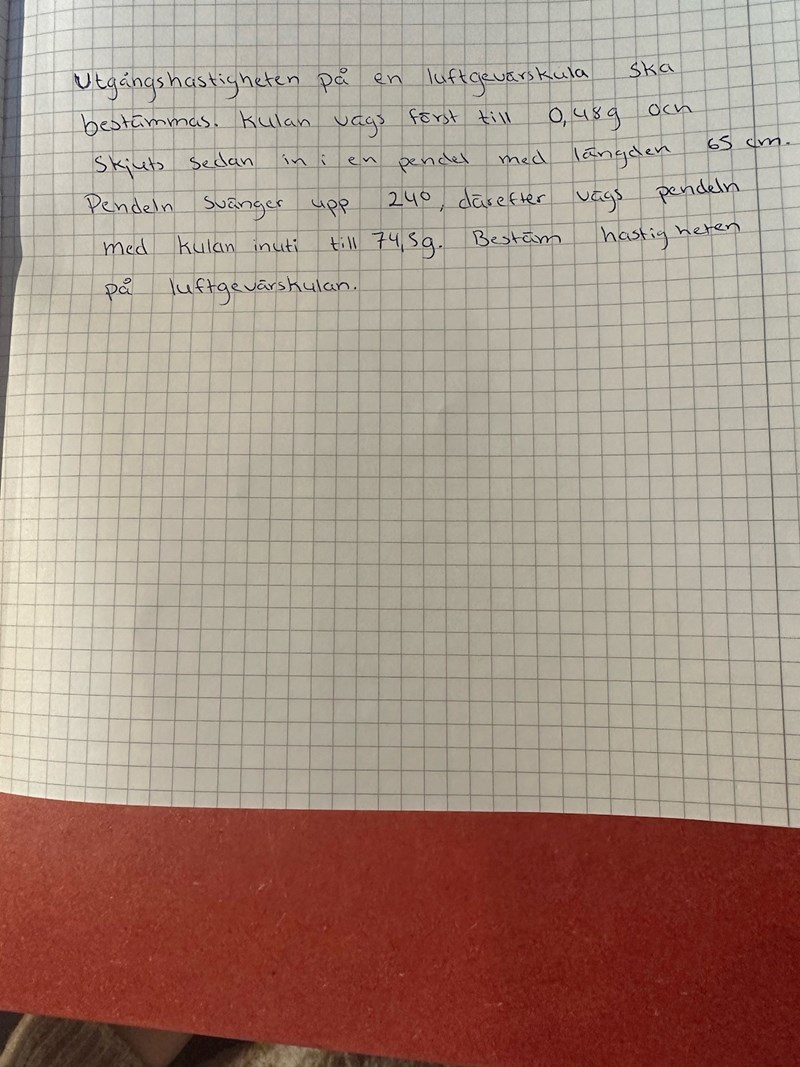 Utgångshastigheten på en luftgevärskula ska
bestämmas. Kulan vägs först till 0,48g och
skjuts sedan in i en pendel med längden 65 cm.
Pendeln svänger upp 24°, därefter vägs pendeln
med kulan inuti till 74,5g. Bestäm hastigheten
på luftgevärskulan.